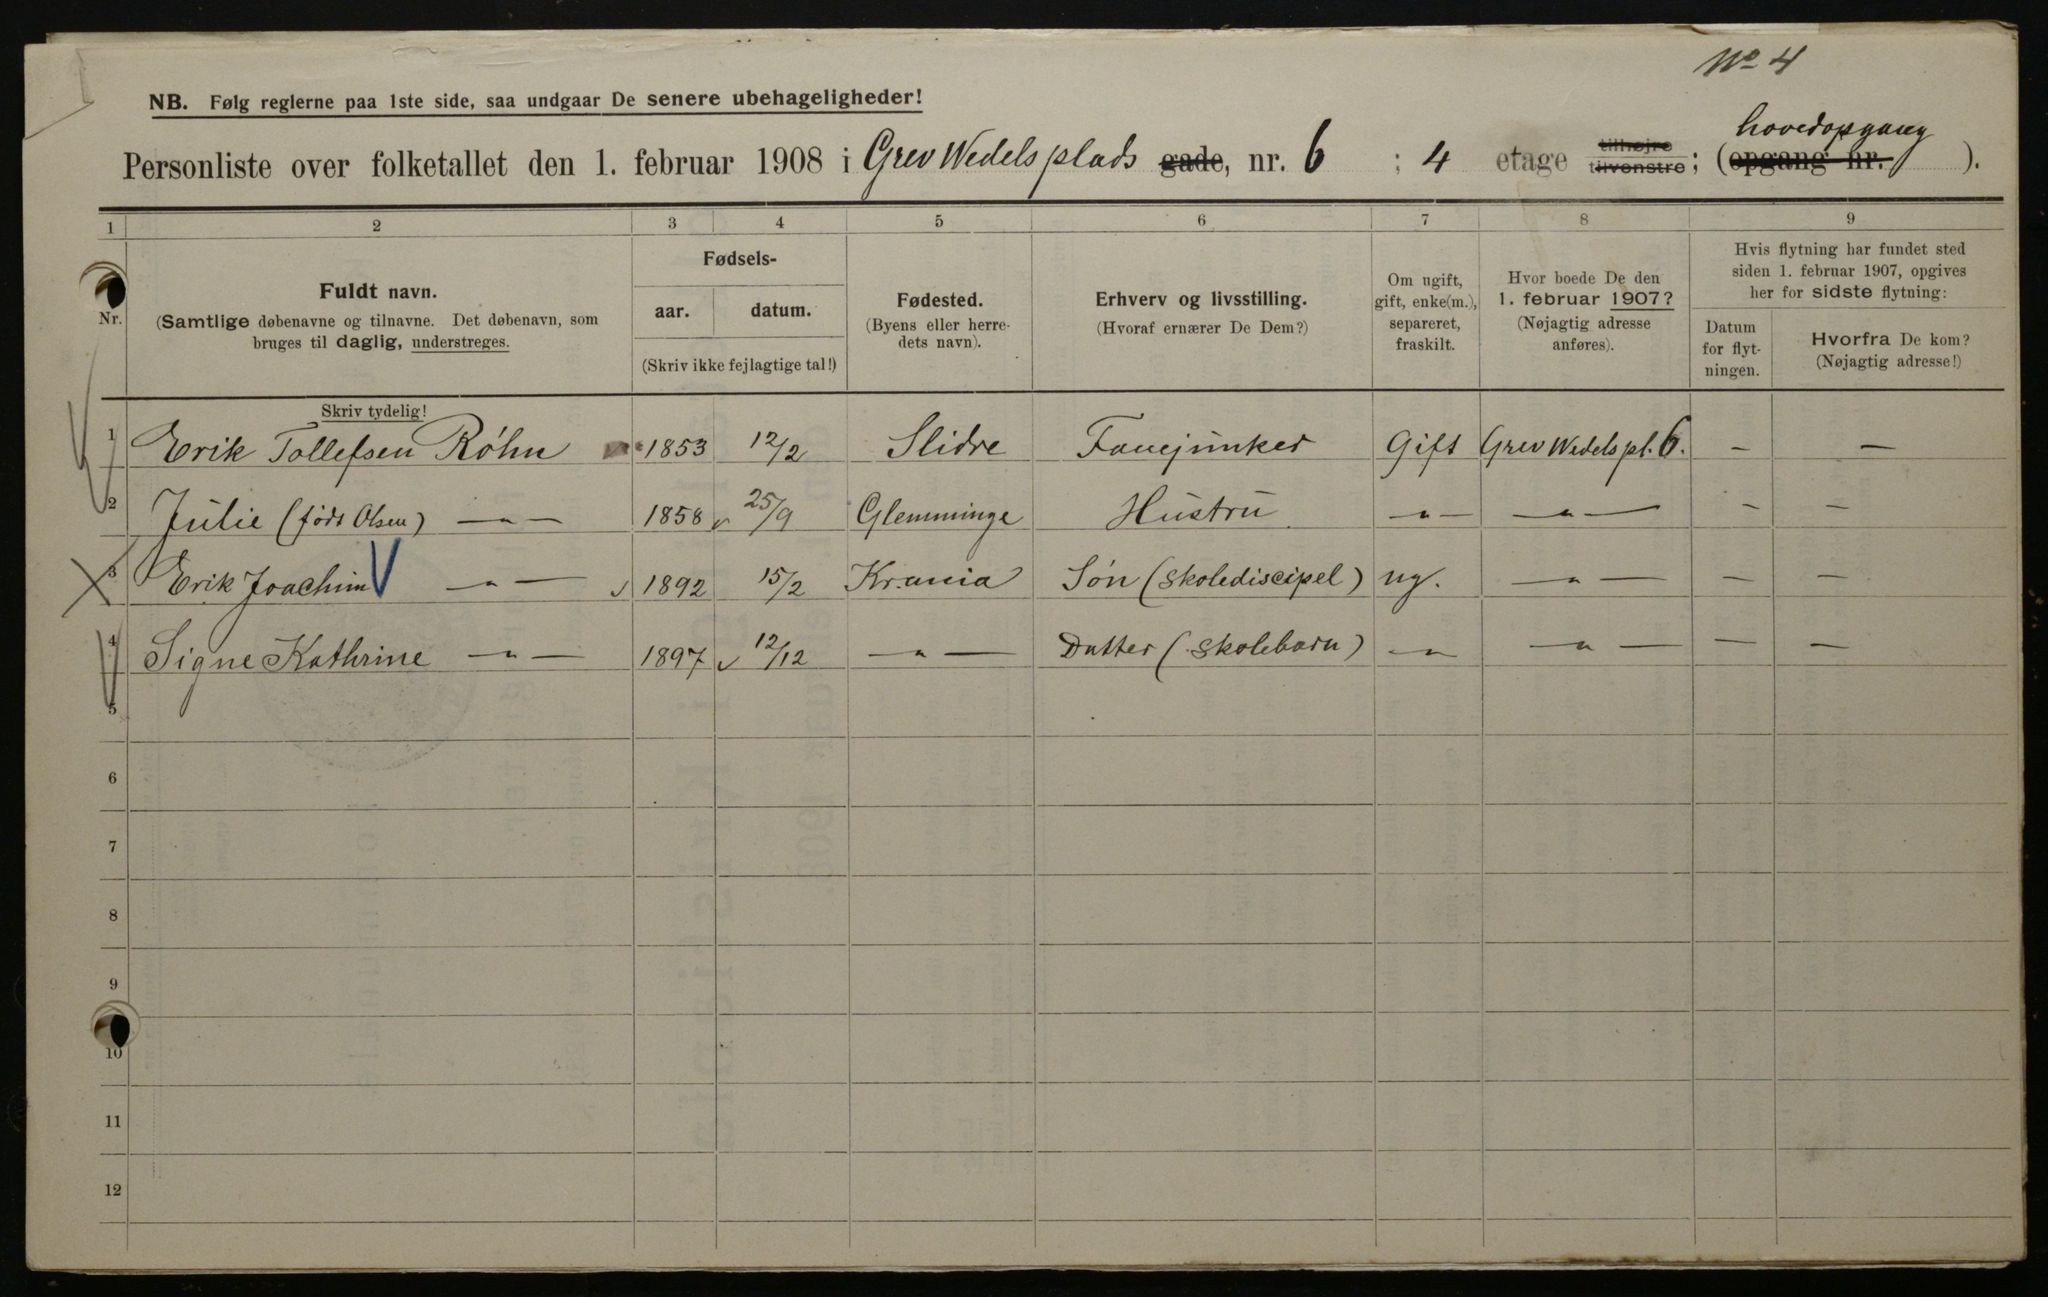 No 4
NB. Følg reglerne paa 1ste side, saa undgaar De senere ubehageligheder!
hovedopgang
Personliste over folketallet den 1. februar 1908 i Grev Wedels plads gade, nr. 6 ; 4 etage tilhøjre tilvenstre; (opgang nr. ).
1 2 3 4 5 6 7 8 9
Nr.
Fuldt navn.
(Samtlige døbenavne og tilnavne. Det døbenavn, som
bruges til daglig, understreges.
Skriv tydelig!
Fødsels-
aar. datum.
(Skriv ikke fejlagtige tal!)
Fødested.
(Byens eller herre-
dets navn).
Erhverv og livsstilling.
(Hvoraf ernærer De Dem?)
Om ugift,
gift, enke(m.),
separeret,
fraskilt.
Hvor boede De den
1. februar 1907?
(Nøjagtig adresse
anføres).
Hvis flytning har fundet sted
siden 1. februar 1907, opgives
her for sidste flytning:
Datum
for flyt-
ningen.
Hvorfra De kom?
(Nøjagtig adresse!)
1 Erik Tollefsen Röhn 1853 12/2 Slidre Fanejunker Gift Grev Wedels pl. 6. — —
2 Julie (født Olsen) —"— 1858 25/9 Glemminge Hustru —"— —"— — —
3 Erik Joachim —"— 1892 15/2 Krania Søn (skolediscipel) ug. —"— — —
4 Signe Kathrine —"— 1897 12/12 —"— Datter (skolebarn) —"— —"— — —
5
6
7
8
9
10
11
12